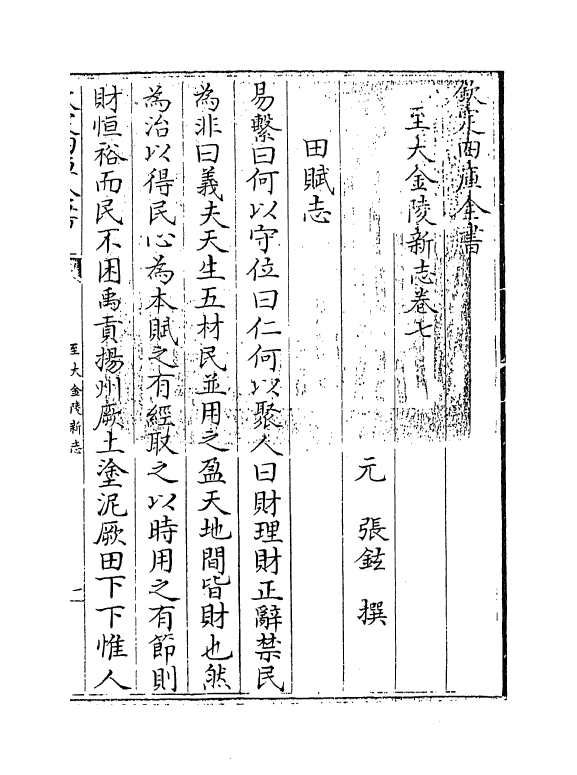 欽定四庫全書
至大金陵新志卷七
元 張鉉 撰
田賦志
易繫曰何以守位曰仁何以聚人曰財理財正辭禁民
為非曰義夫天生五材民並用之盈天地間皆財也然
為治以得民心為本賦之有經取之以時用之有節則
財恒裕而民不困禹貢揚州厥土塗泥厥田下下惟人
至大金陵新志